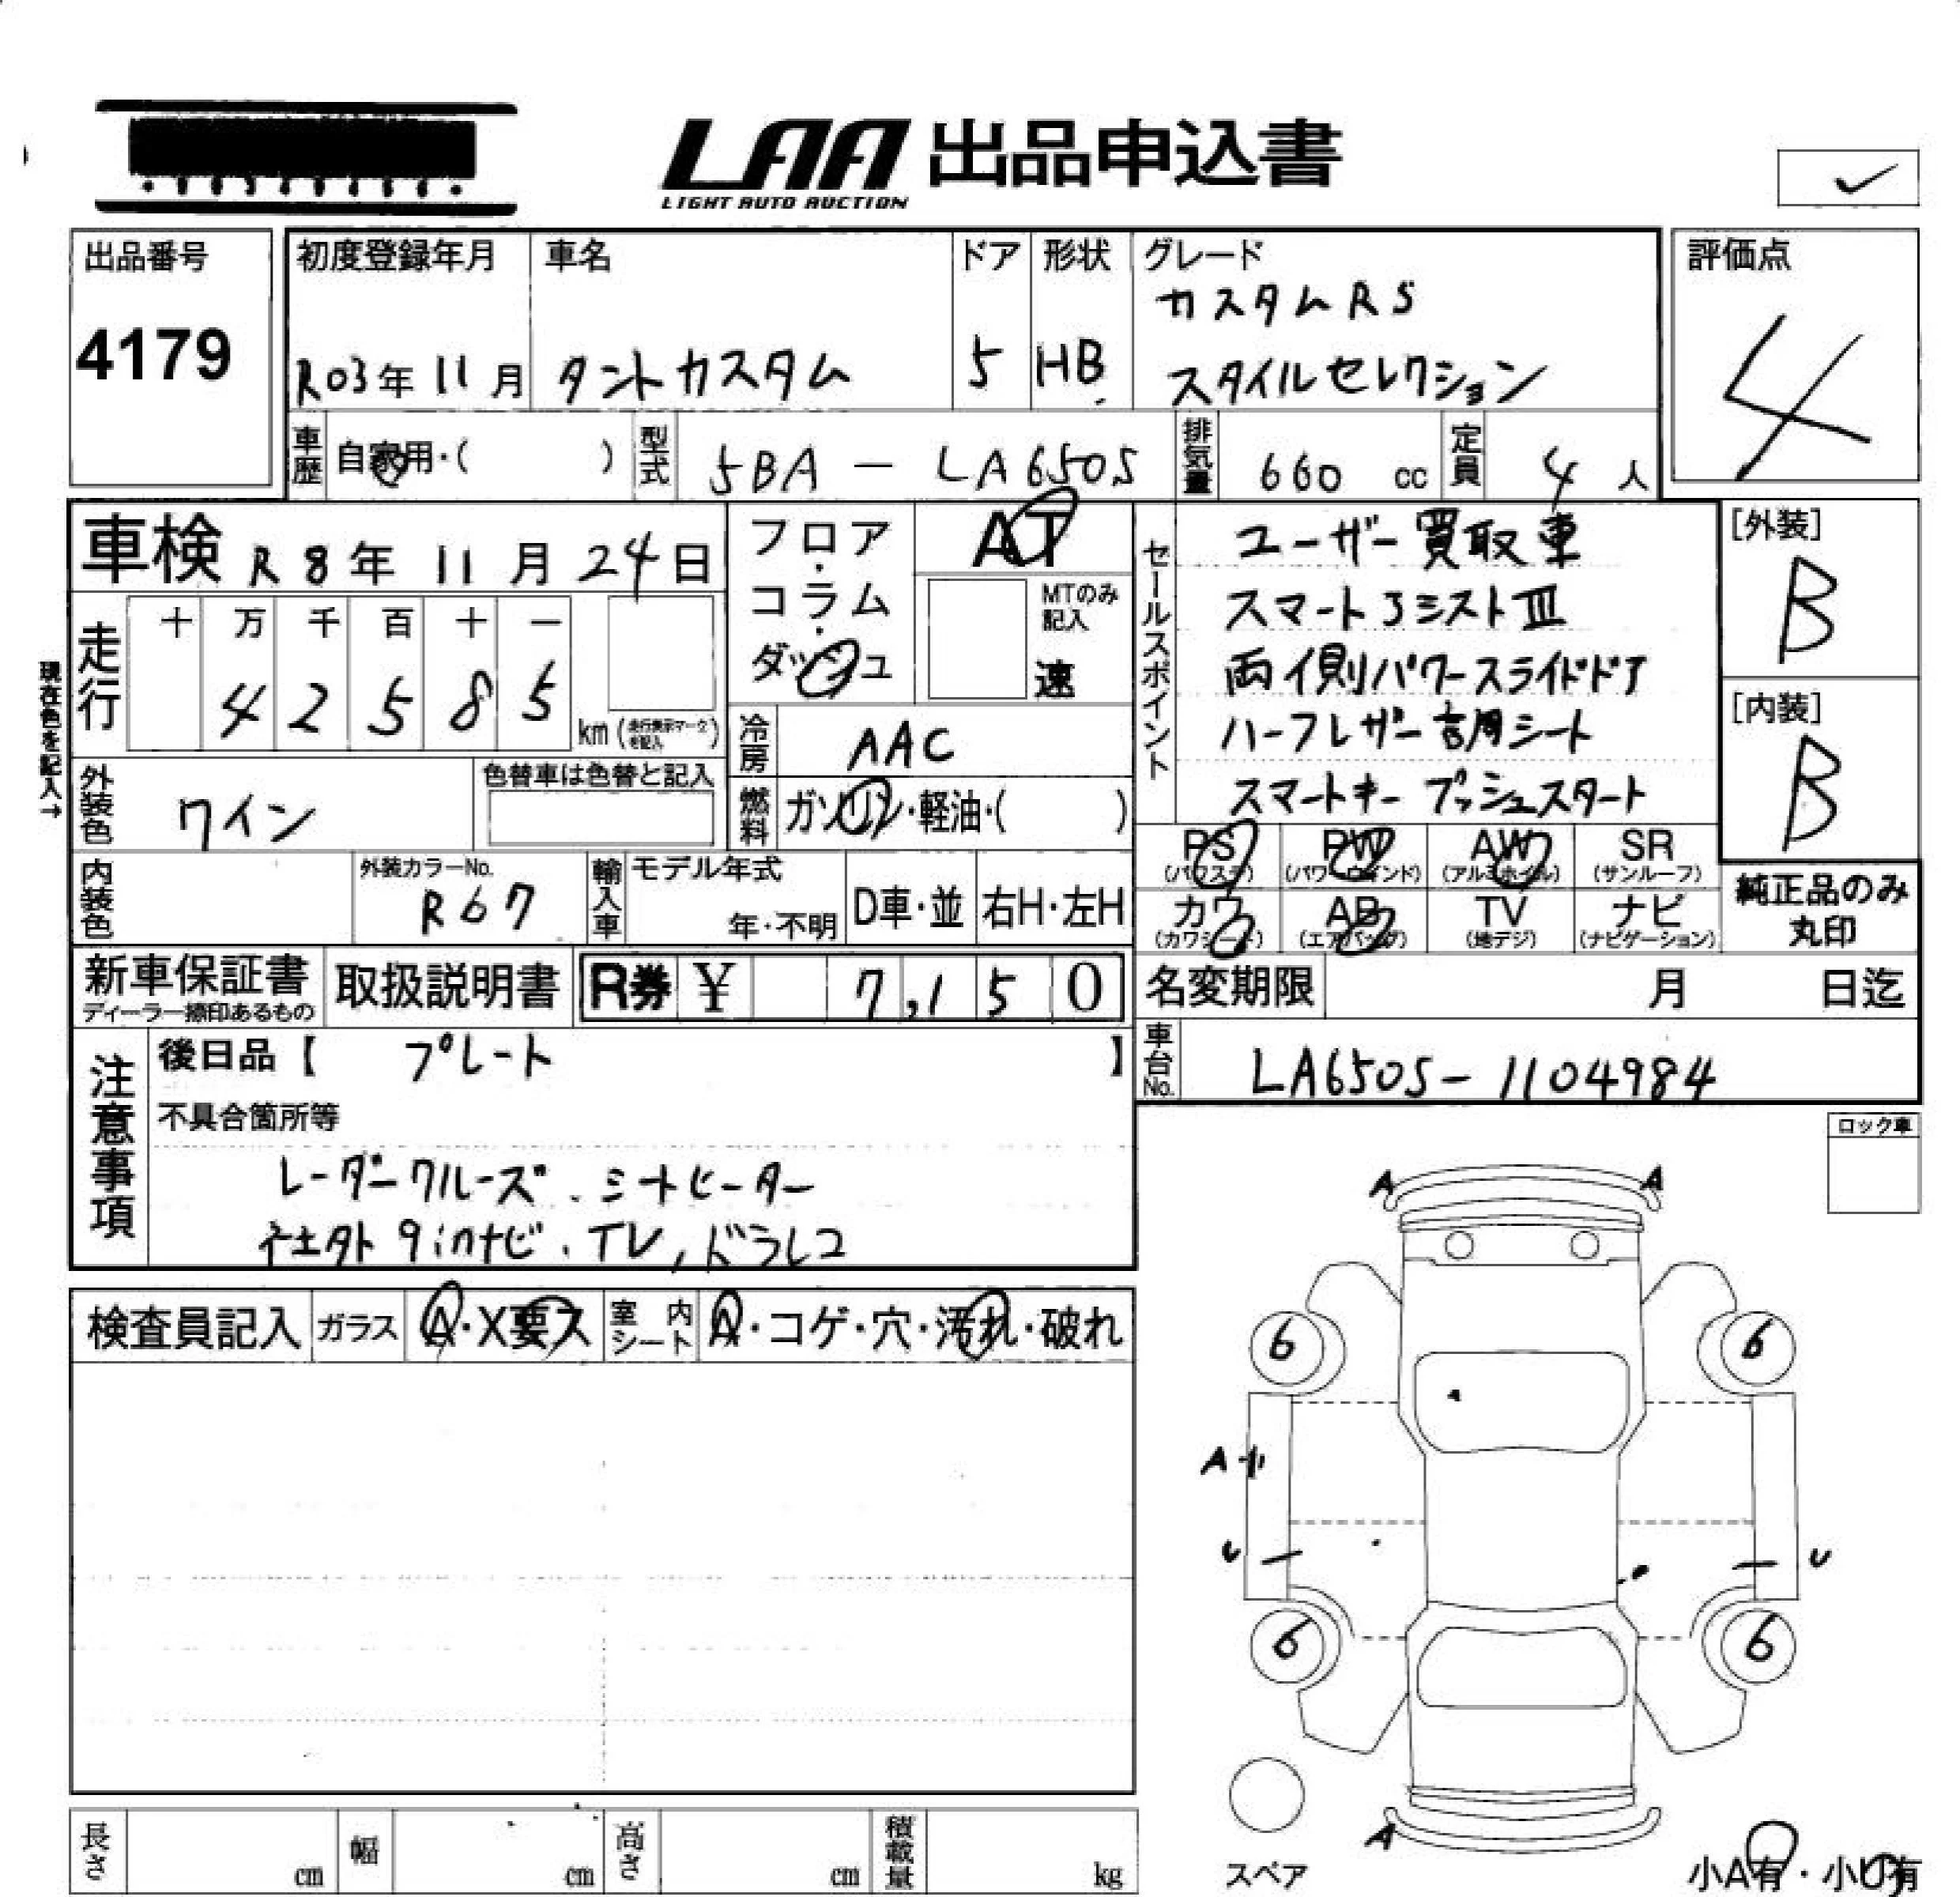 LAA 出品申込書
LIGHT AUTO AUCTION
出品番号
4179
初度登録年月
R03年 11月
車名
タントカスタム
ドア
5
形状
HB
グレード
カスタムRS
スタイルセレクション
評価点
4
車歴 自家用・( )
型式 5BA - LA650S
排気量 660 cc
定員 4 人
車検 R8年 11月 24日
フロア・コラム・ダッシュ
AT
MTのみ記入
速
走行
十 万 千 百 十 一
4 2 5 8 5
km (走行表示マークを記入)
現在色を記入→
冷房 AAC
外装色 ワイン
色替車は色替と記入
燃料 ガソリン・軽油・( )
内装色
外装カラーNo.
R67
輸入車 モデル年式
年・不明
D車・並
右H・左H
セールスポイント
ユーザー買取車
スマートJミストIII
両側パワースライドドア
ハーフレザー調シート
スマートキー プッシュスタート
[外装]
B
[内装]
B
PS (パワステ)
PW (パワーウィンド)
AW (アルミホイル)
SR (サンルーフ)
カワ (カワシート)
AB (エアバッグ)
TV (地デジ)
ナビ (ナビゲーション)
純正品のみ丸印
新車保証書
ディーラー捺印あるもの
取扱説明書
R券 ¥ 7,150
名変期限 月 日迄
車台No. LA650S-1104984
注意事項
後日品【 プレート 】
不具合箇所等
レーダークルーズ、シートヒーター
社外9inナビ、TV,ドラレコ
ロック車
検査員記入
ガラス A・X要ス
室内シート A・コゲ・穴・汚れ・破れ
A A
6 6
A
U U
6 6
A
スペア
小A有・小U有
長さ cm
幅 cm
高さ cm
積載量 kg